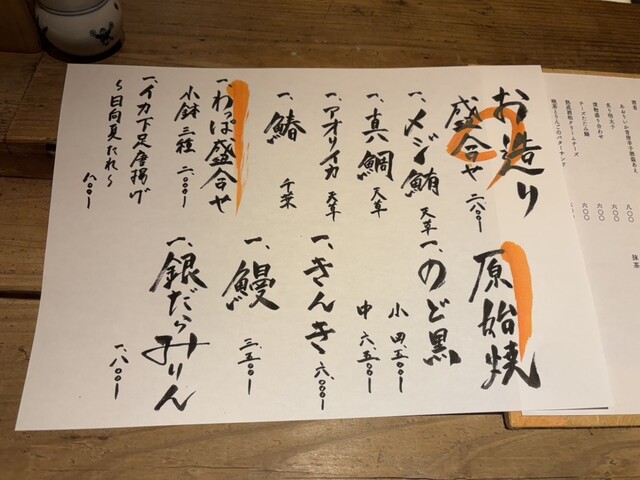 お造り
盛合せ 二、〇〇〇ー
一、メジ鮪 天草
一、真鯛 天草
一、アオリイカ 天草
一、鰆 千葉
一、わっぱ盛合せ
小鉢 三種 二、〇〇〇ー
一、イカ下足唐揚げ
〜日向夏だれ〜 八〇〇ー
原始焼
一、のど黒
小 四、五〇〇ー
中 六、五〇〇ー
一、きんき 六、〇〇〇ー
一、鰻 三、五〇〇ー
一、銀だらみりん
一、八〇〇ー
抹茶
八〇〇
炙り明太子 六〇〇
漬物盛り合わせ 六〇〇